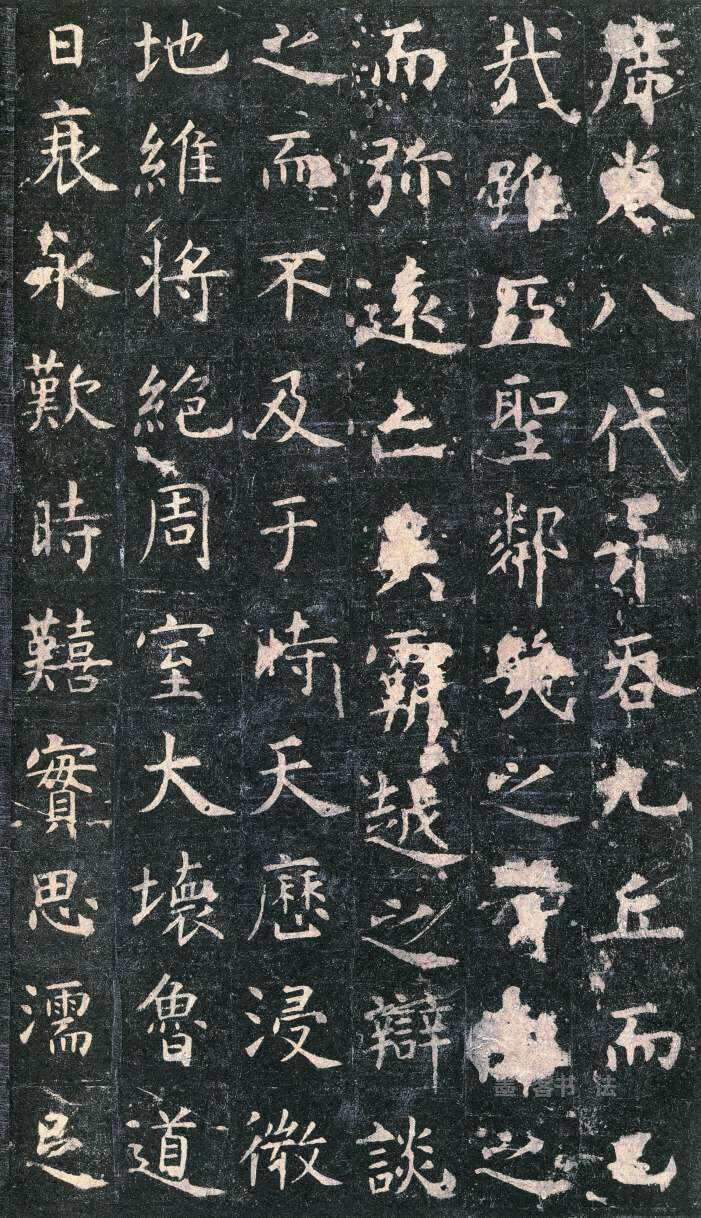 席卷八代并吞九丘而已
哉雖亞聖鄰幾之之
而弥遠亡吳霸越之辯談
之而不及于時天歷浸微
地維將絕周室大壞魯道
日衰永歎時囏實思濡足
墨客书法